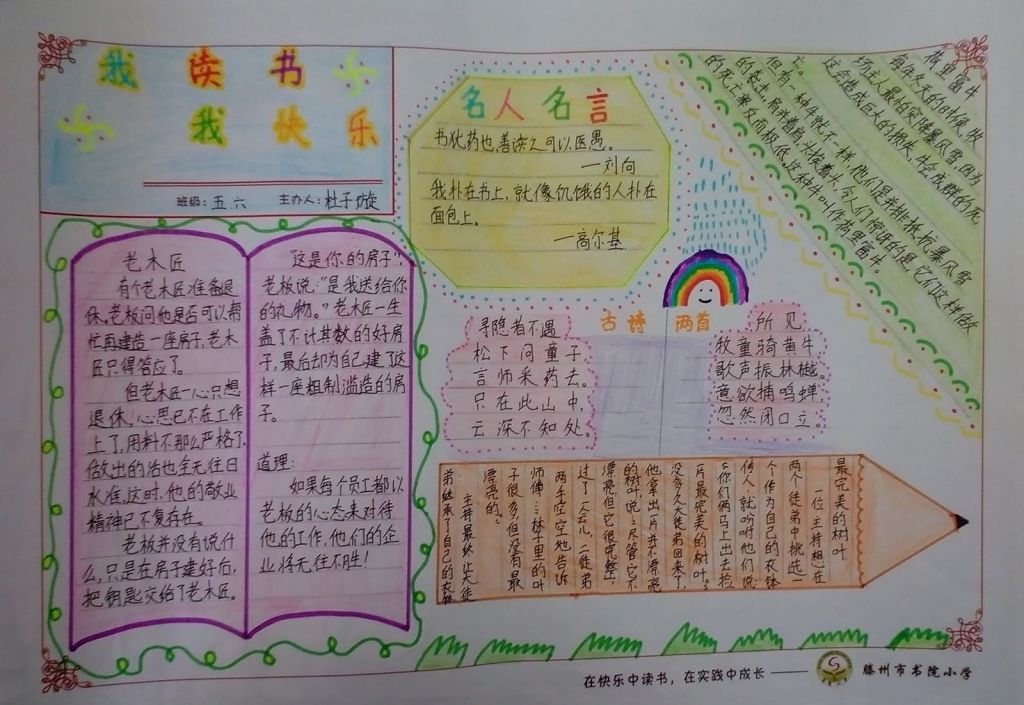 我 读 书
我 快 乐
班级：五 六 主办人：杜子璇
老木匠
有个老木匠准备退
休，老板问他是否可以帮
忙再建造一座房子，老木
匠只得答应了。
但老木匠一心只想
退休，心思已不在工作
上了，用料不那么严格了，
做出的活也全无往日
水准，这时，他的敬业
精神已不复存在。
老板并没有说什
么，只是在房子建好后，
把钥匙交给了老木匠。
"这是你的房子"，
老板说："是我送给你
的礼物。"老木匠一生
盖了不计其数的好房
子，最后却为自己建了这
样一座粗制滥造的房
子。
道理：
如果每个员工都以
老板的心态来对待
他的工作，他们的企
业将无往不胜！
名人名言
书犹药也，善读之可以医愚。
—刘向
我扑在书上，就像饥饿的人扑在
面包上。
—高尔基
古诗 两首
寻隐者不遇
松下问童子，
言师采药去。
只在此山中，
云深不知处。
所见
牧童骑黄牛
歌声振林樾。
意欲捕鸣蝉，
忽然闭口立。
每年冬天的时候，牧
场主人最怕突降暴风雪，因为
这会造成巨大的损失，牛会成群的死
亡。
但有一种牛就不一样，他们是并排抵抗暴风雪
的袭击，肩并着肩，头挨着头，令人们惊讶的是，它们这样做
的死亡率反而极低。
最完美的树叶
一位主持想在
两个徒弟中挑选一
个作为自己的衣钵
传人，就吩咐他们说：
"你们俩马上出去捡
片最完美的树叶。"
没多久，大徒弟回来了，
他拿出片并不漂亮
的树叶，说："尽管它不
漂亮，但它很完整。"
过了一会儿，二徒弟
两手空空地告诉
师傅："…林子里的叶
子很多，但没有最
漂亮的。"
主持最终让大徒
弟继承了自己的衣钵
在快乐中读书，在实践中成长 —— 滕州市书院小学